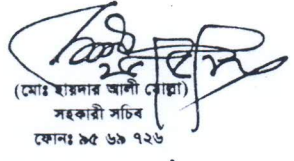 (মোঃ হায়দার আলী মোল্লা)
সহকারী সচিব
ফোনঃ ৯৫ ৬৯ ১২৬